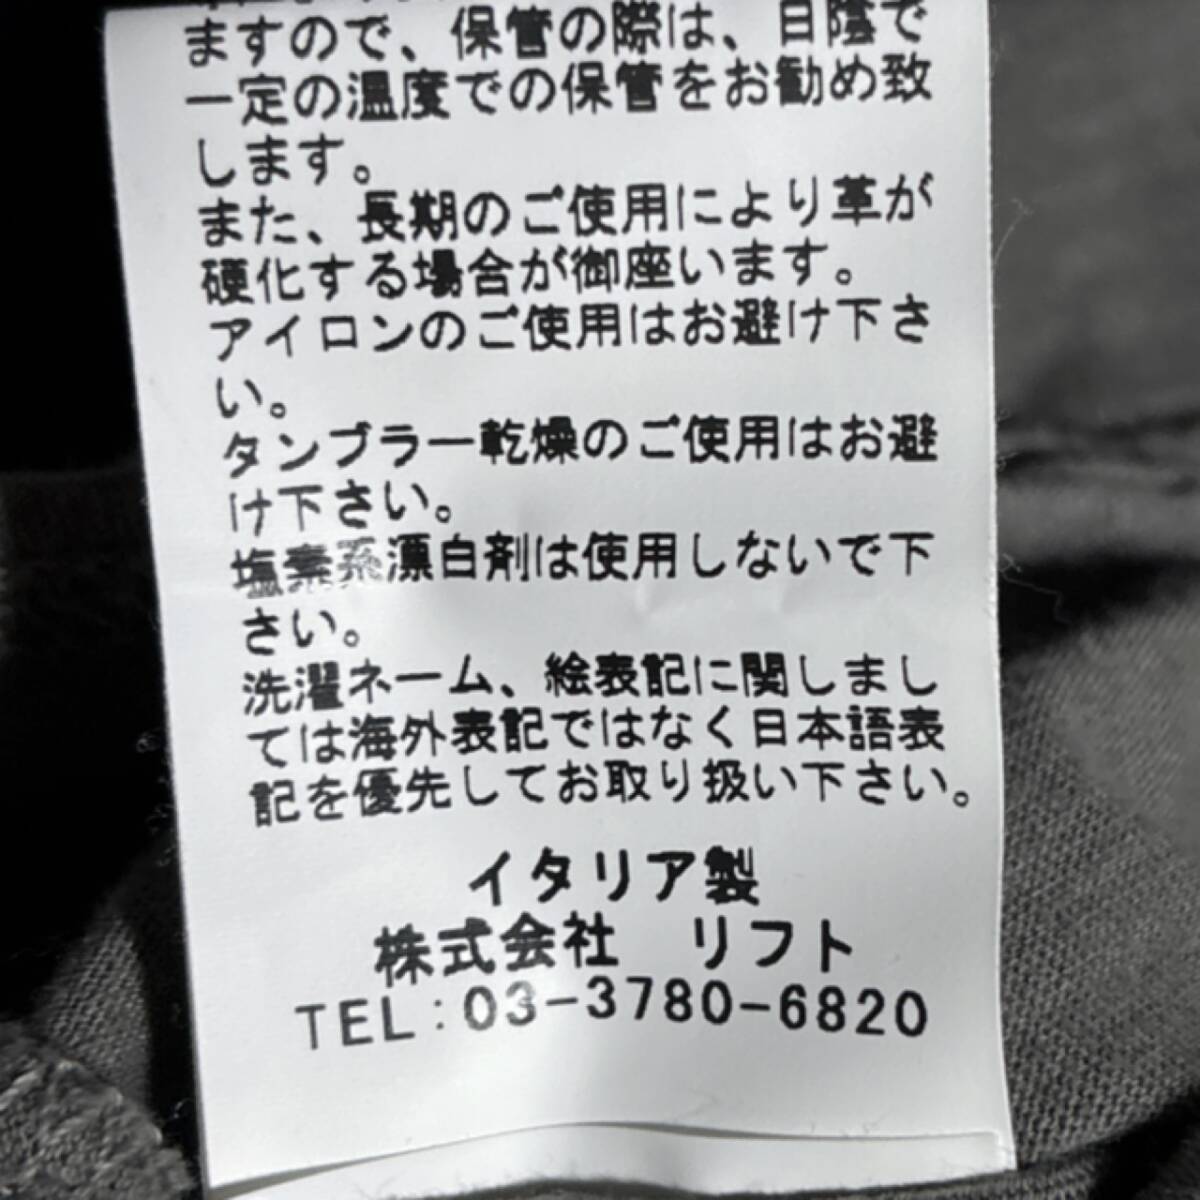 ますので、保管の際は、日陰で
一定の温度での保管をお勧め致
します。
また、長期のご使用により革が
硬化する場合が御座います。
アイロンのご使用はお避け下さ
い。
タンブラー乾燥のご使用はお避
け下さい。
塩素系漂白剤は使用しないで下
さい。
洗濯ネーム、絵表記に関しまし
ては海外表記ではなく日本語表
記を優先してお取り扱い下さい。
イタリア製
株式会社 リフト
TEL:03-3780-6820